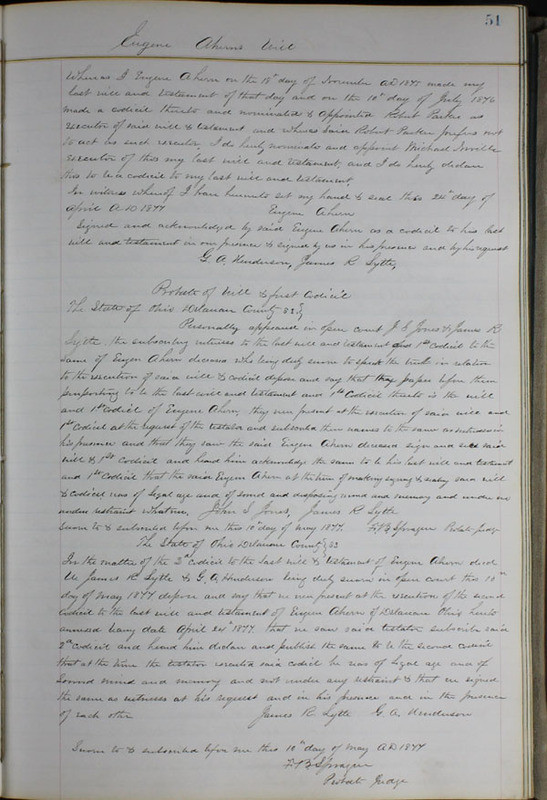 51
Eugene Aherns Will
Whereas I Eugene Ahern on the 18th day of November AD 1875 made my
last will and testament of that day and on the 10th day of July 1876
made a codicil thereto and nominated & appointed Robert Parker as
executor of said will & testament and whereas said Robert Parker prefers not
to act as such executor, I do hereby nominate and appoint Michael
executor of this my last will and testament, and I do hereby declare
this to be a codicil to my last will and testament.
In witness whereof I have hereunto set my hand & seal this 24th day of
April A.D 1877 Eugene Ahern
Signed and acknowledged by said Eugene Ahern as a codicil to his last
will and testament in our presence & signed by us in his presence and by his request
G. A. Henderson, James R. Lytle,
Probate of Will & first Codicil
The State of Ohio Delaware County SS}
Personally appeared in open court J. S. Jones & James R
Lytle, the subscribing witnesses to the last will and testament and 1st Codicil to the
same of Eugene Ahern deceased who being duly sworn to speak the truth in relation
to the execution of said will & codicil depose and say that the paper before them
purporting to be the last will and testament and 1st Codicil thereto is the will
and 1st Codicil of Eugene Ahern, they were present at the execution of said will and
1st Codicil at the request of the testator and subscribed their names to the same as witnesses in
his presence and that they saw the said Eugene Ahern deceased sign and seal said
will & 1st Codicil and heard him acknowledge the same to be his last will and testament
and 1st Codicil that the said Eugene Ahern at the time of making signing & sealing said will
& codicil was of legal age and of sound and disposing mind and memory and under no
undue restraint whatever. John S Jones, James R Lytle
Sworn to & subscribed before me this 10th day of May 1877. F. B. Sprague Probate Judge
The State of Ohio Delaware County } SS
In the matter of the 2d codicil to the last will & testament of Eugene Ahern decd
We James R Lytle & G. A. Henderson being duly sworn in open court this 10th
day of May 1877 depose and say that we were present at the execution of the second
codicil to the last will and testament of Eugene Ahern of Delaware Ohio hereto
annexed bearing date April 24th 1877 that we saw said testator subscribe said
2d codicil and heard him declare and publish the same to be the second codicil
that at the time the testator executed said codicil he was of legal age and of
sound mind and memory and not under any restraint & that we signed
the same as witnesses at his request and in his presence and in the presence
of each other James R Lytle G. A. Henderson
Sworn to & subscribed before me this 10th day of May AD 1877
F. B. Sprague
Probate Judge